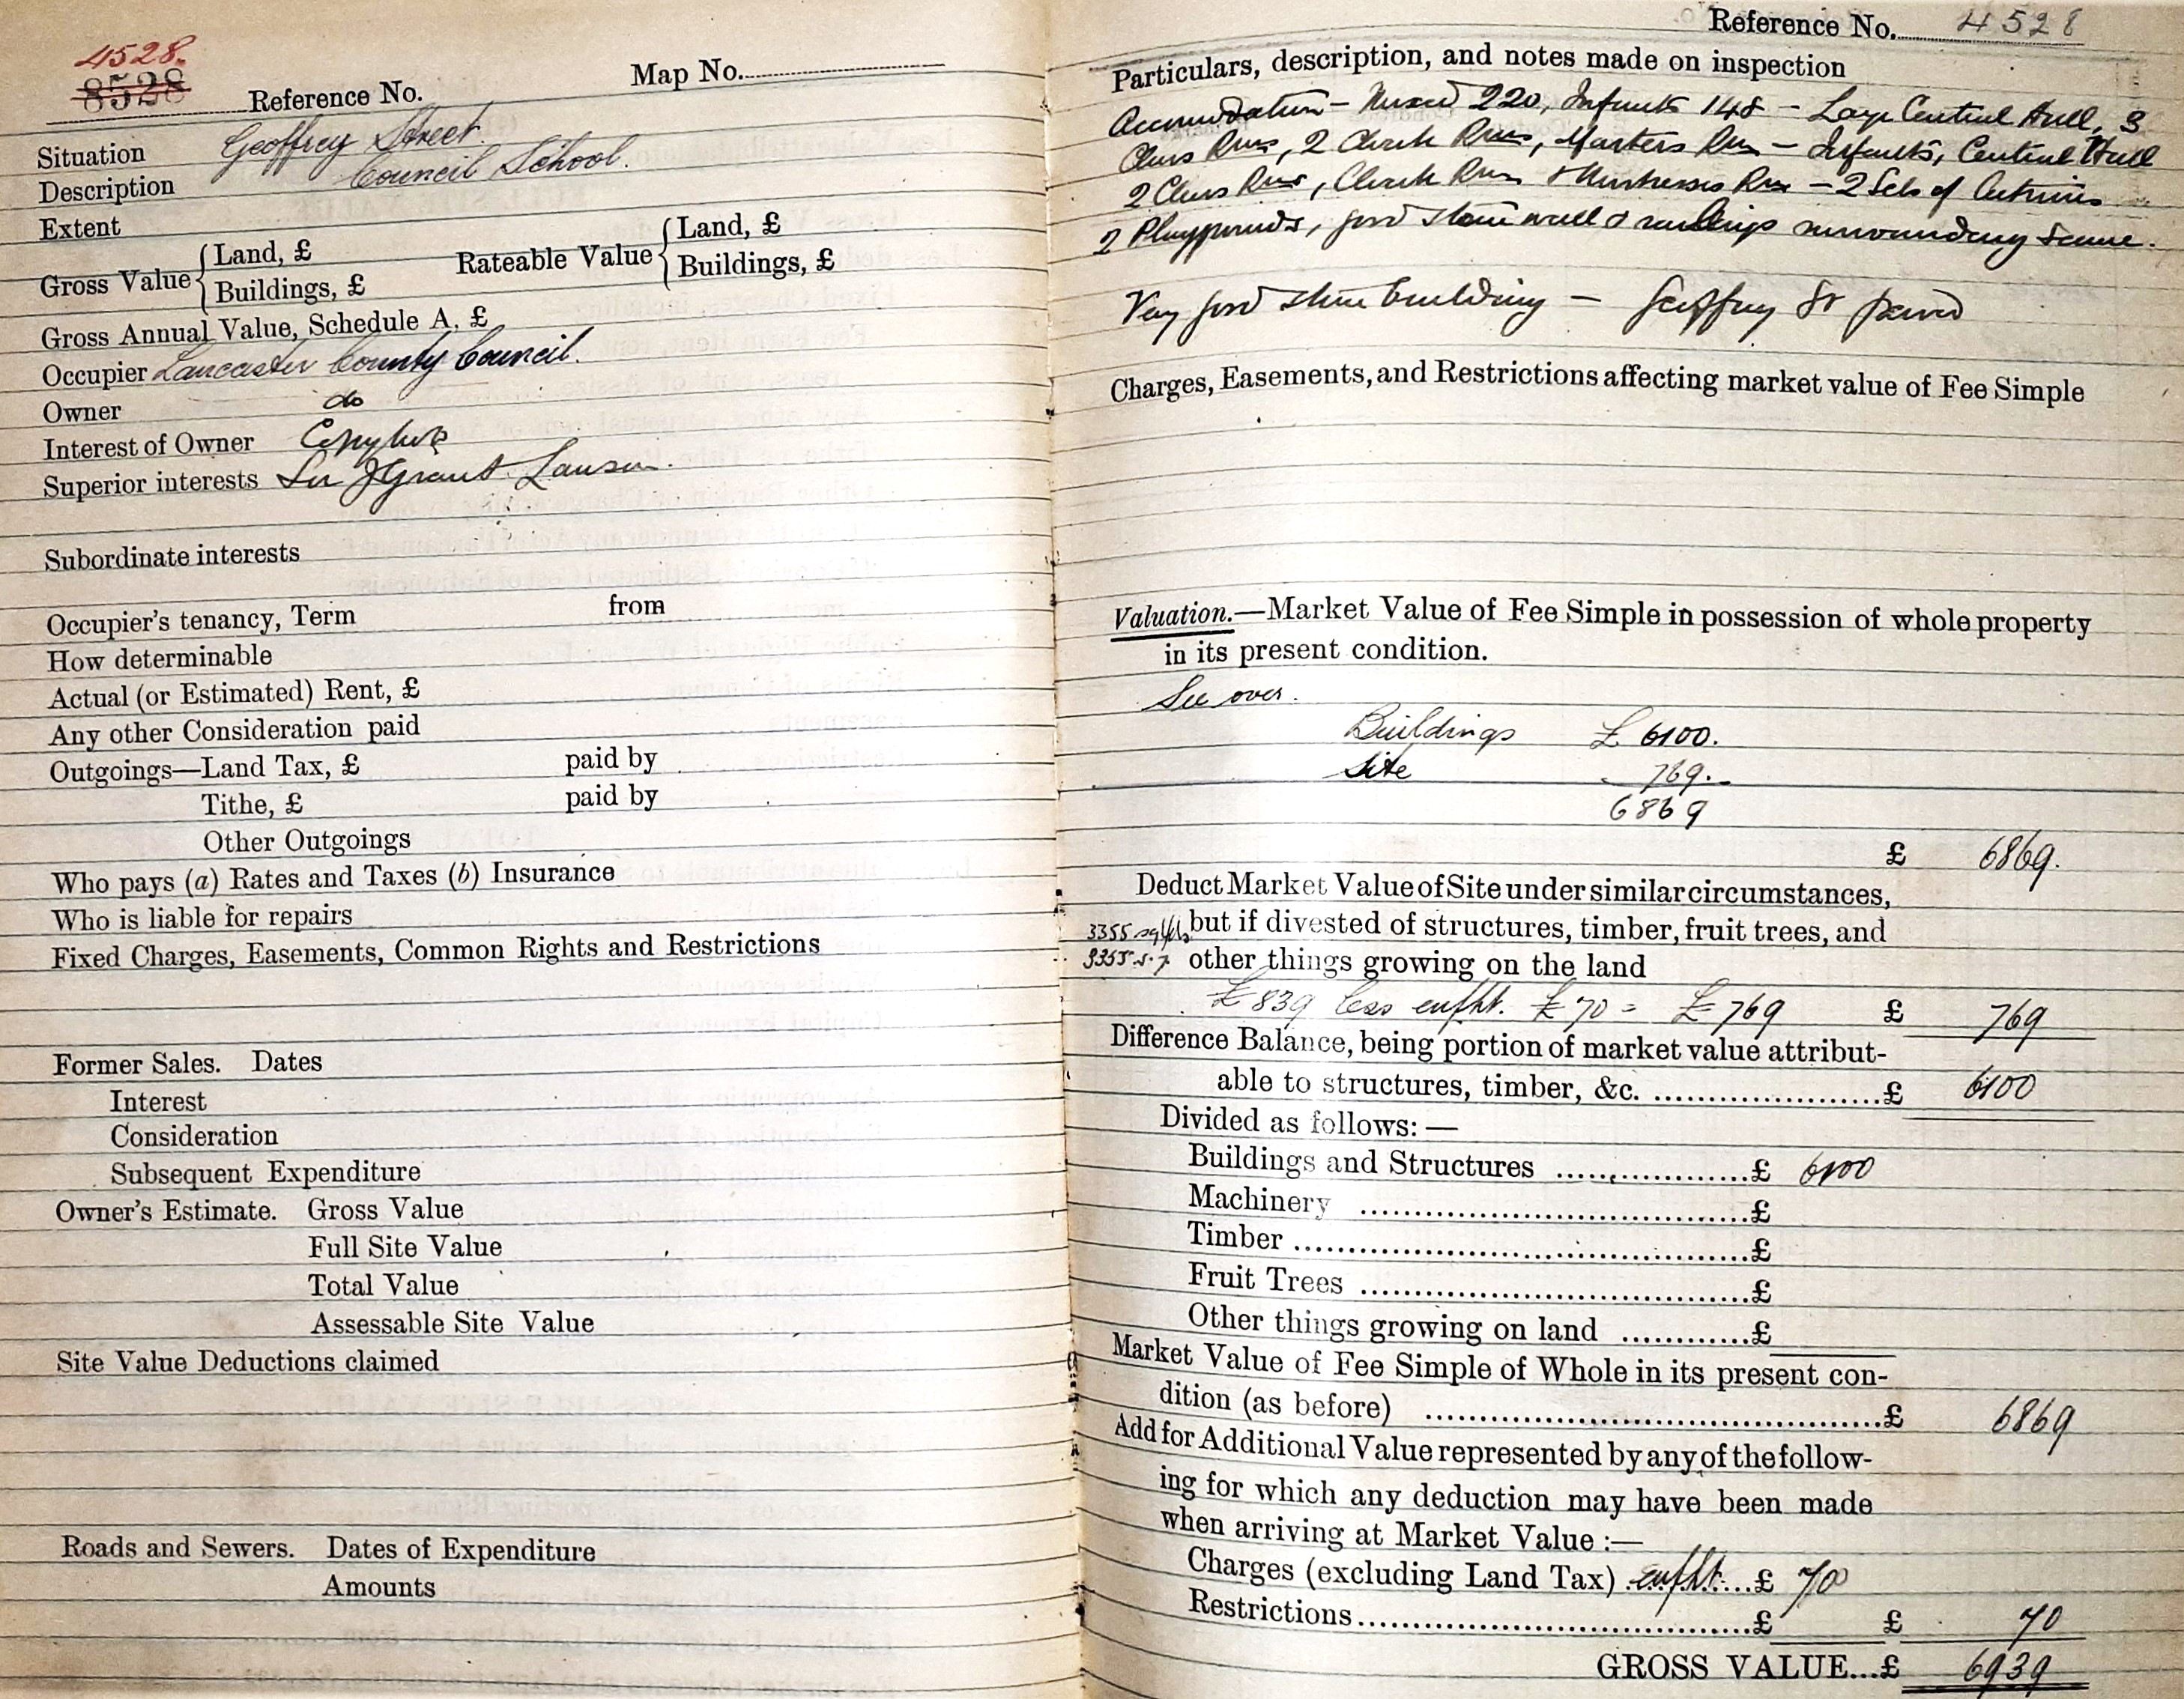 4528.
8528
Reference No. Map No.
Situation Geoffrey Street.
Description Council School.
Extent
Gross Value { Land, £ Rateable Value { Land, £
Buildings, £ Buildings, £
Gross Annual Value, Schedule A, £
Occupier Lancaster County Council.
Owner do
Interest of Owner Copyhold
Superior interests Sir J Grant Lawson.
Subordinate interests
Occupier's tenancy, Term from
How determinable
Actual (or Estimated) Rent, £
Any other Consideration paid
Outgoings—Land Tax, £ paid by
Tithe, £ paid by
Other Outgoings
Who pays (a) Rates and Taxes (b) Insurance
Who is liable for repairs
Fixed Charges, Easements, Common Rights and Restrictions
Former Sales. Dates
Interest
Consideration
Subsequent Expenditure
Owner's Estimate. Gross Value
Full Site Value
Total Value
Assessable Site Value
Site Value Deductions claimed
Roads and Sewers. Dates of Expenditure
Amounts
Reference No. 4528
Particulars, description, and notes made on inspection
Accomodation – Mixed 220, Infants 148 – Large Central Hall, 3
Class Rms, 2 Cloak Rms, Masters Rm – Infants, Central Hall
2 Class Rms, Cloak Rm & Mistresses Rm – 2 Sets of Latrines
2 Playgrounds, good stone wall & railings surrounding same.
Very good stone building – Geoffrey St paved
Charges, Easements, and Restrictions affecting market value of Fee Simple
Valuation.—Market Value of Fee Simple in possession of whole property
in its present condition.
See over.
Buildings £ 6100.
Site 769.
6869
£ 6869.
Deduct Market Value of Site under similar circumstances,
3355 sq yds but if divested of structures, timber, fruit trees, and
other things growing on the land
£839 less enfht. £70 = £769 £ 769
Difference Balance, being portion of market value attribut-
able to structures, timber, &c. ....................£ 6100
Divided as follows:—
Buildings and Structures ..................£ 6100
Machinery ..................£
Timber ..................£
Fruit Trees ..................£
Other things growing on land ............£
Market Value of Fee Simple of Whole in its present con-
dition (as before) ..................£ 6869
Add for Additional Value represented by any of the follow-
ing for which any deduction may have been made
when arriving at Market Value :—
Charges (excluding Land Tax) enfht. ...£ 70
Restrictions ..................£ £ 70
GROSS VALUE...£ 6939